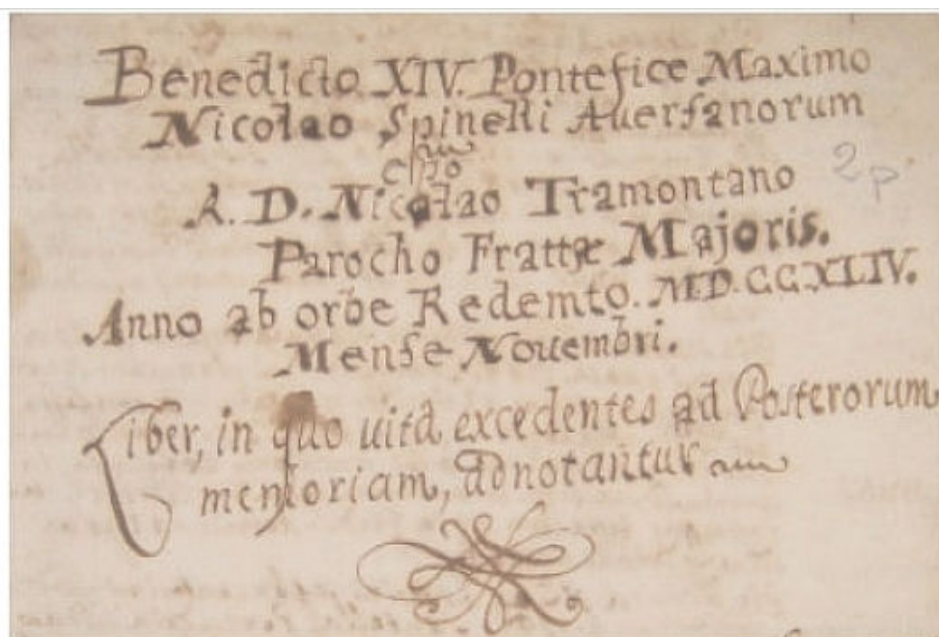 Benedicto XIV. Pontefice Maximo
Nicolao Spinelli Auersanorum
R. D. Nicolao Tramontano
Parocho Frattæ Majoris.
Anno ab orbe Redemto. M.D.CCXLIV.
Mense Nouembri.
Liber, in quo uitâ excedentes ad Posterorum
memoriam, adnotantur
2 p